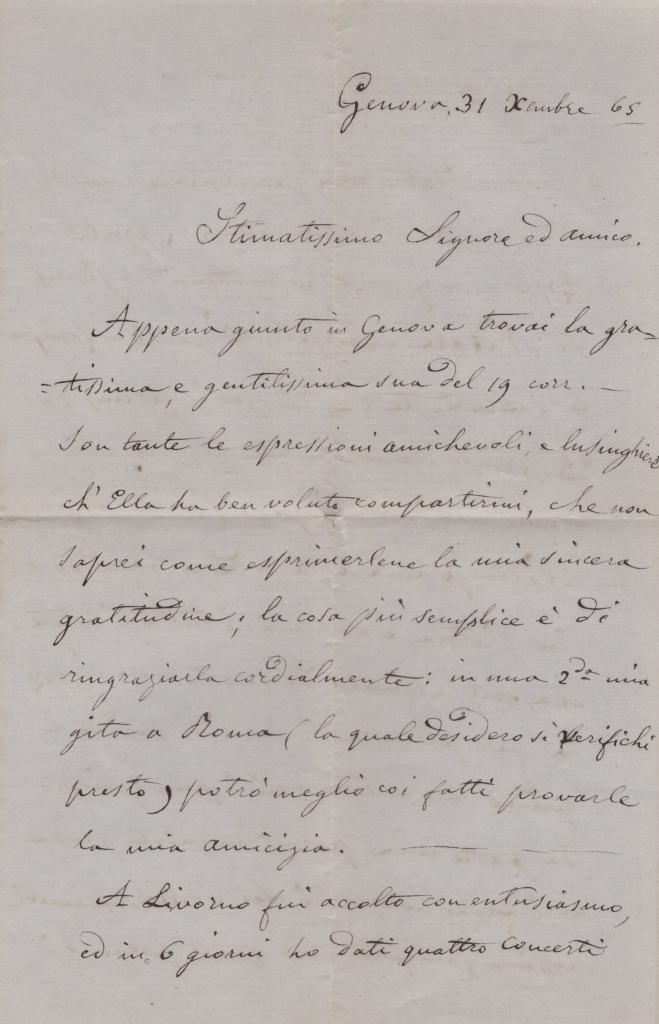 Genova, 31 Xembre 65
Stimatissimo Signore ed amico.
Appena giunto in Genova trovai la gra=
=tissima, e gentilissima sua del 19 corr. —
Son tante le espressioni amichevoli, e lusinghiere
ch' Ella ha ben voluto compartirmi, che non
saprei come esprimerlene la mia sincera
gratitudine; la cosa più semplice è di
ringraziarla cordialmente: in una 2da mia
gita a Roma (la quale desidero si verifichi
presto) potrò meglio coi fatti provarle
la mia amicizia. —— ——
A Livorno fui accolto con entusiasmo,
ed in 6 giorni ho dati quattro concerti